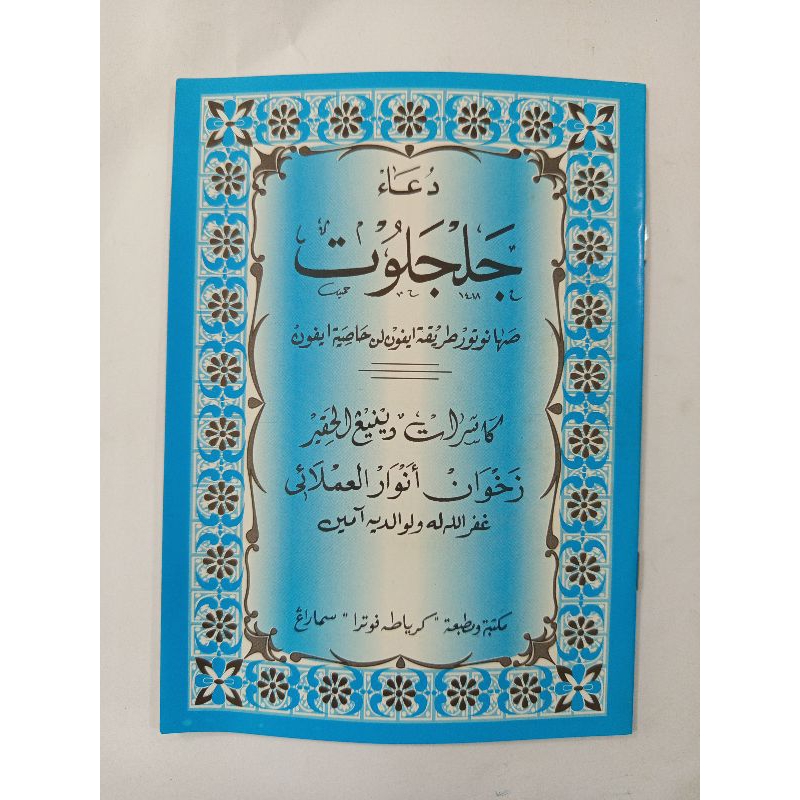 دُعَاءْ
جَلْجَلُوْتْ
١٤١٨
صها نوتور طريقة ايفون لن خاصية ايفون
كاسرات دينيڠ الحقير
زَخْوَانْ أَنْوَارْ العملائي
غفر الله له ولوالديه آمين
مكتبة ومطبعة "كرياطه فوترا" سماراڠ